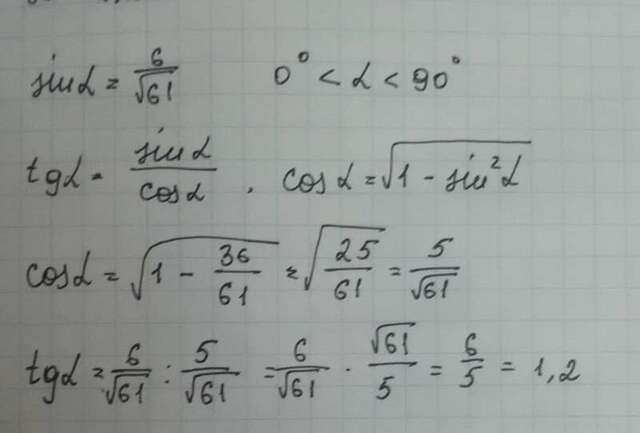 sin α = 6/√61   0° < α < 90°
tg α = sin α/cos α , cos α = √(1 - sin² α)
cos α = √(1 - 36/61) = √(25/61) = 5/√61
tg α = 6/√61 : 5/√61 = 6/√61 · √61/5 = 6/5 = 1,2